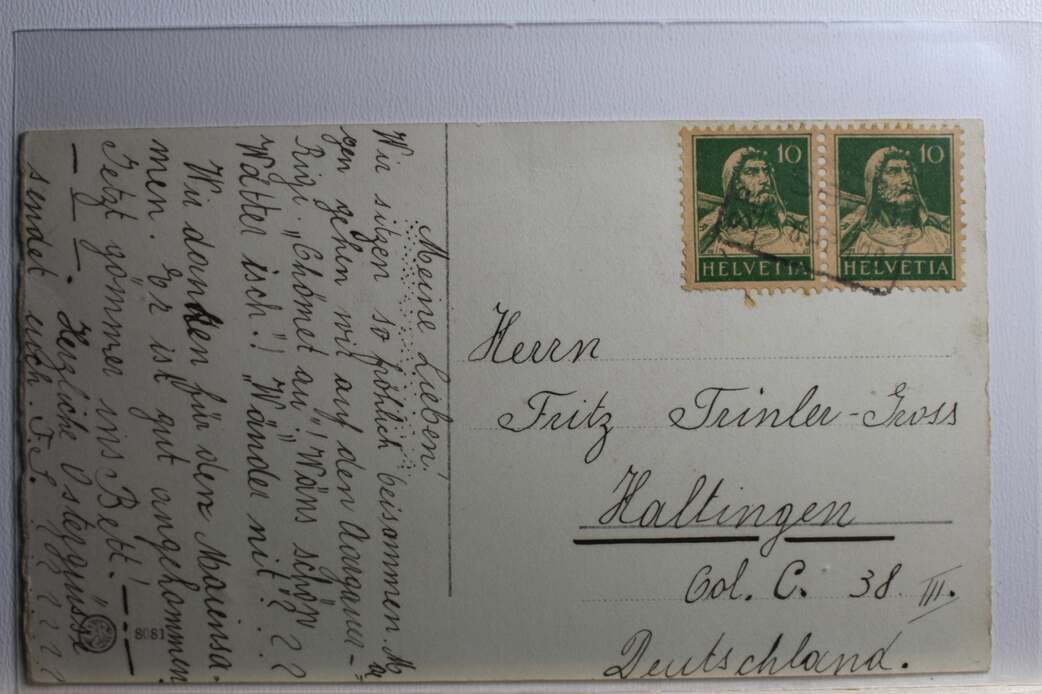 Meine Lieben!
Wir sitzen so fröhlich beisammen. Mor
gen gehen wir auf den Aargauer-
Rigi. "Chömet au"! Wäns schön
Wätter isch"! "Wänder nit?? ? ?
Wir danken für den Maiensa-
men. Er ist gut angekommen.
Jetzt gömmer ins Bett! —
Herzliche Ostergrüsse
sendet euch. F. S.
8081
10
HELVETIA
10
HELVETIA
Herrn
Fritz Trinler-Gross
Haltingen
Col. C. 38 III.
Deutschland.